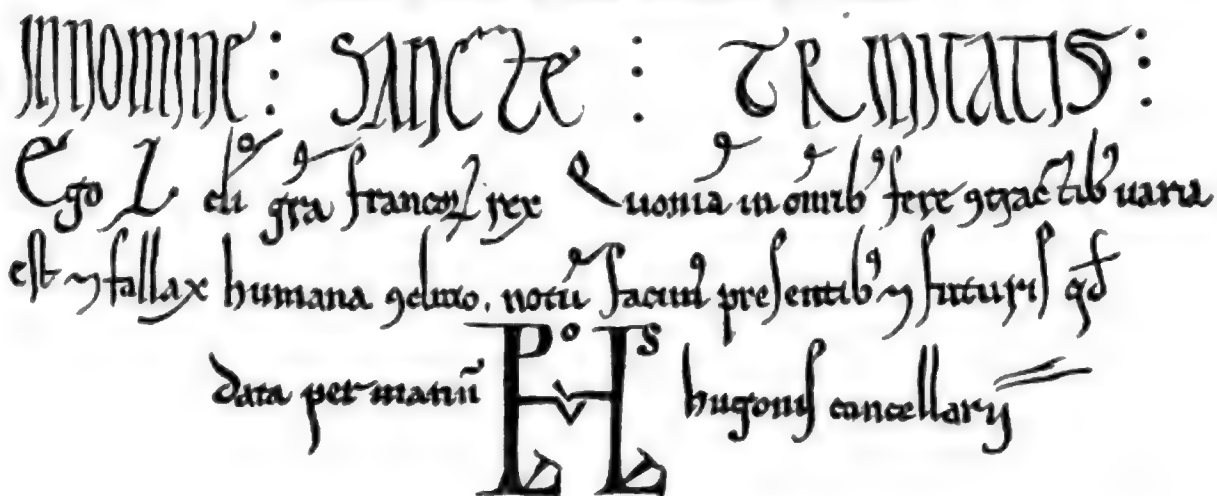 INNOMINE : SANCTE : TRINITATIS :
Ego L. di̅ gr̅a francoꝝ rex Quonia̅ in om̅ib᾽ fere ꝯtractib᾽ uaria
est ⁊ fallax humana ꝯditio. notu̅ facim᾽ presentib᾽ ⁊ futuris qd̅
data per manu̅ hugonis cancellarij